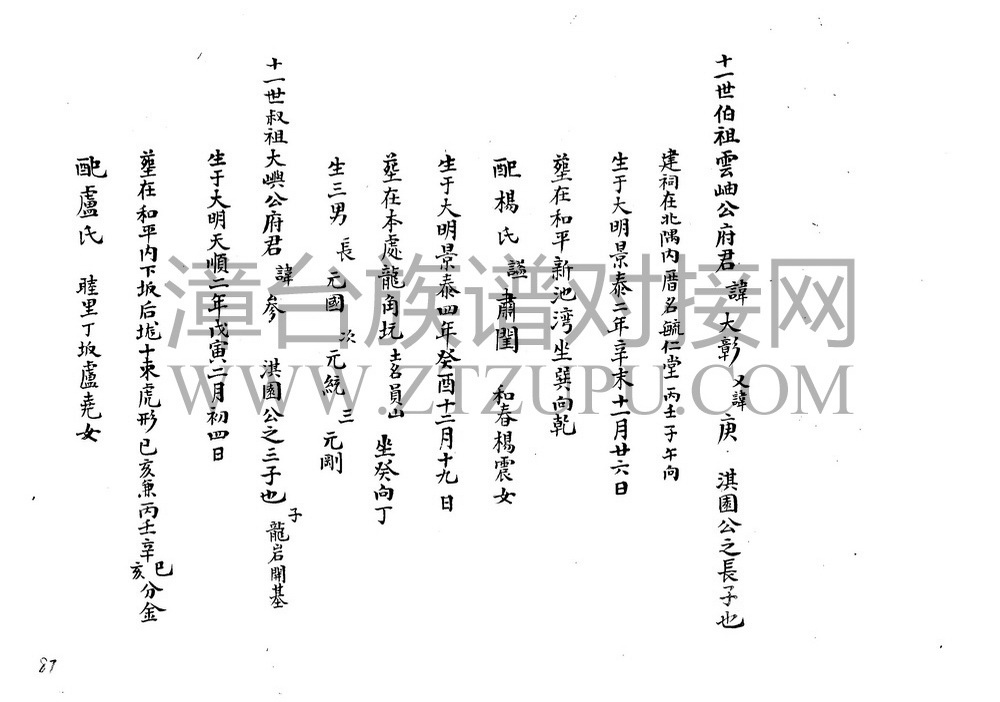 十一世伯祖雲岫公府君 諱大彰 又諱庚 淇園公之長子也
建祠在北隅内厝名毓仁堂丙壬子午向
生于大明景泰二年辛未十一月廿六日
塟在和平新池湾坐巽向乾
配楊氏 謚肅閨 和春楊震女
生于大明景泰四年癸酉十二月十九日
塟在本處龍角坑 土名員山 坐癸向丁
生三男 長元國 次元統 三元剛
十一世叔祖大嶼公府君 諱參 淇園公之三子也 子龍岩開基
生于大明天順二年戊寅二月初四日
塟在和平内下坂后 十束虎形巳亥兼丙壬辛巳辛亥分金
配盧氏 睦里丁坂盧堯女
87
漳台族谱对接网
WWW.ZTZUPU.COM